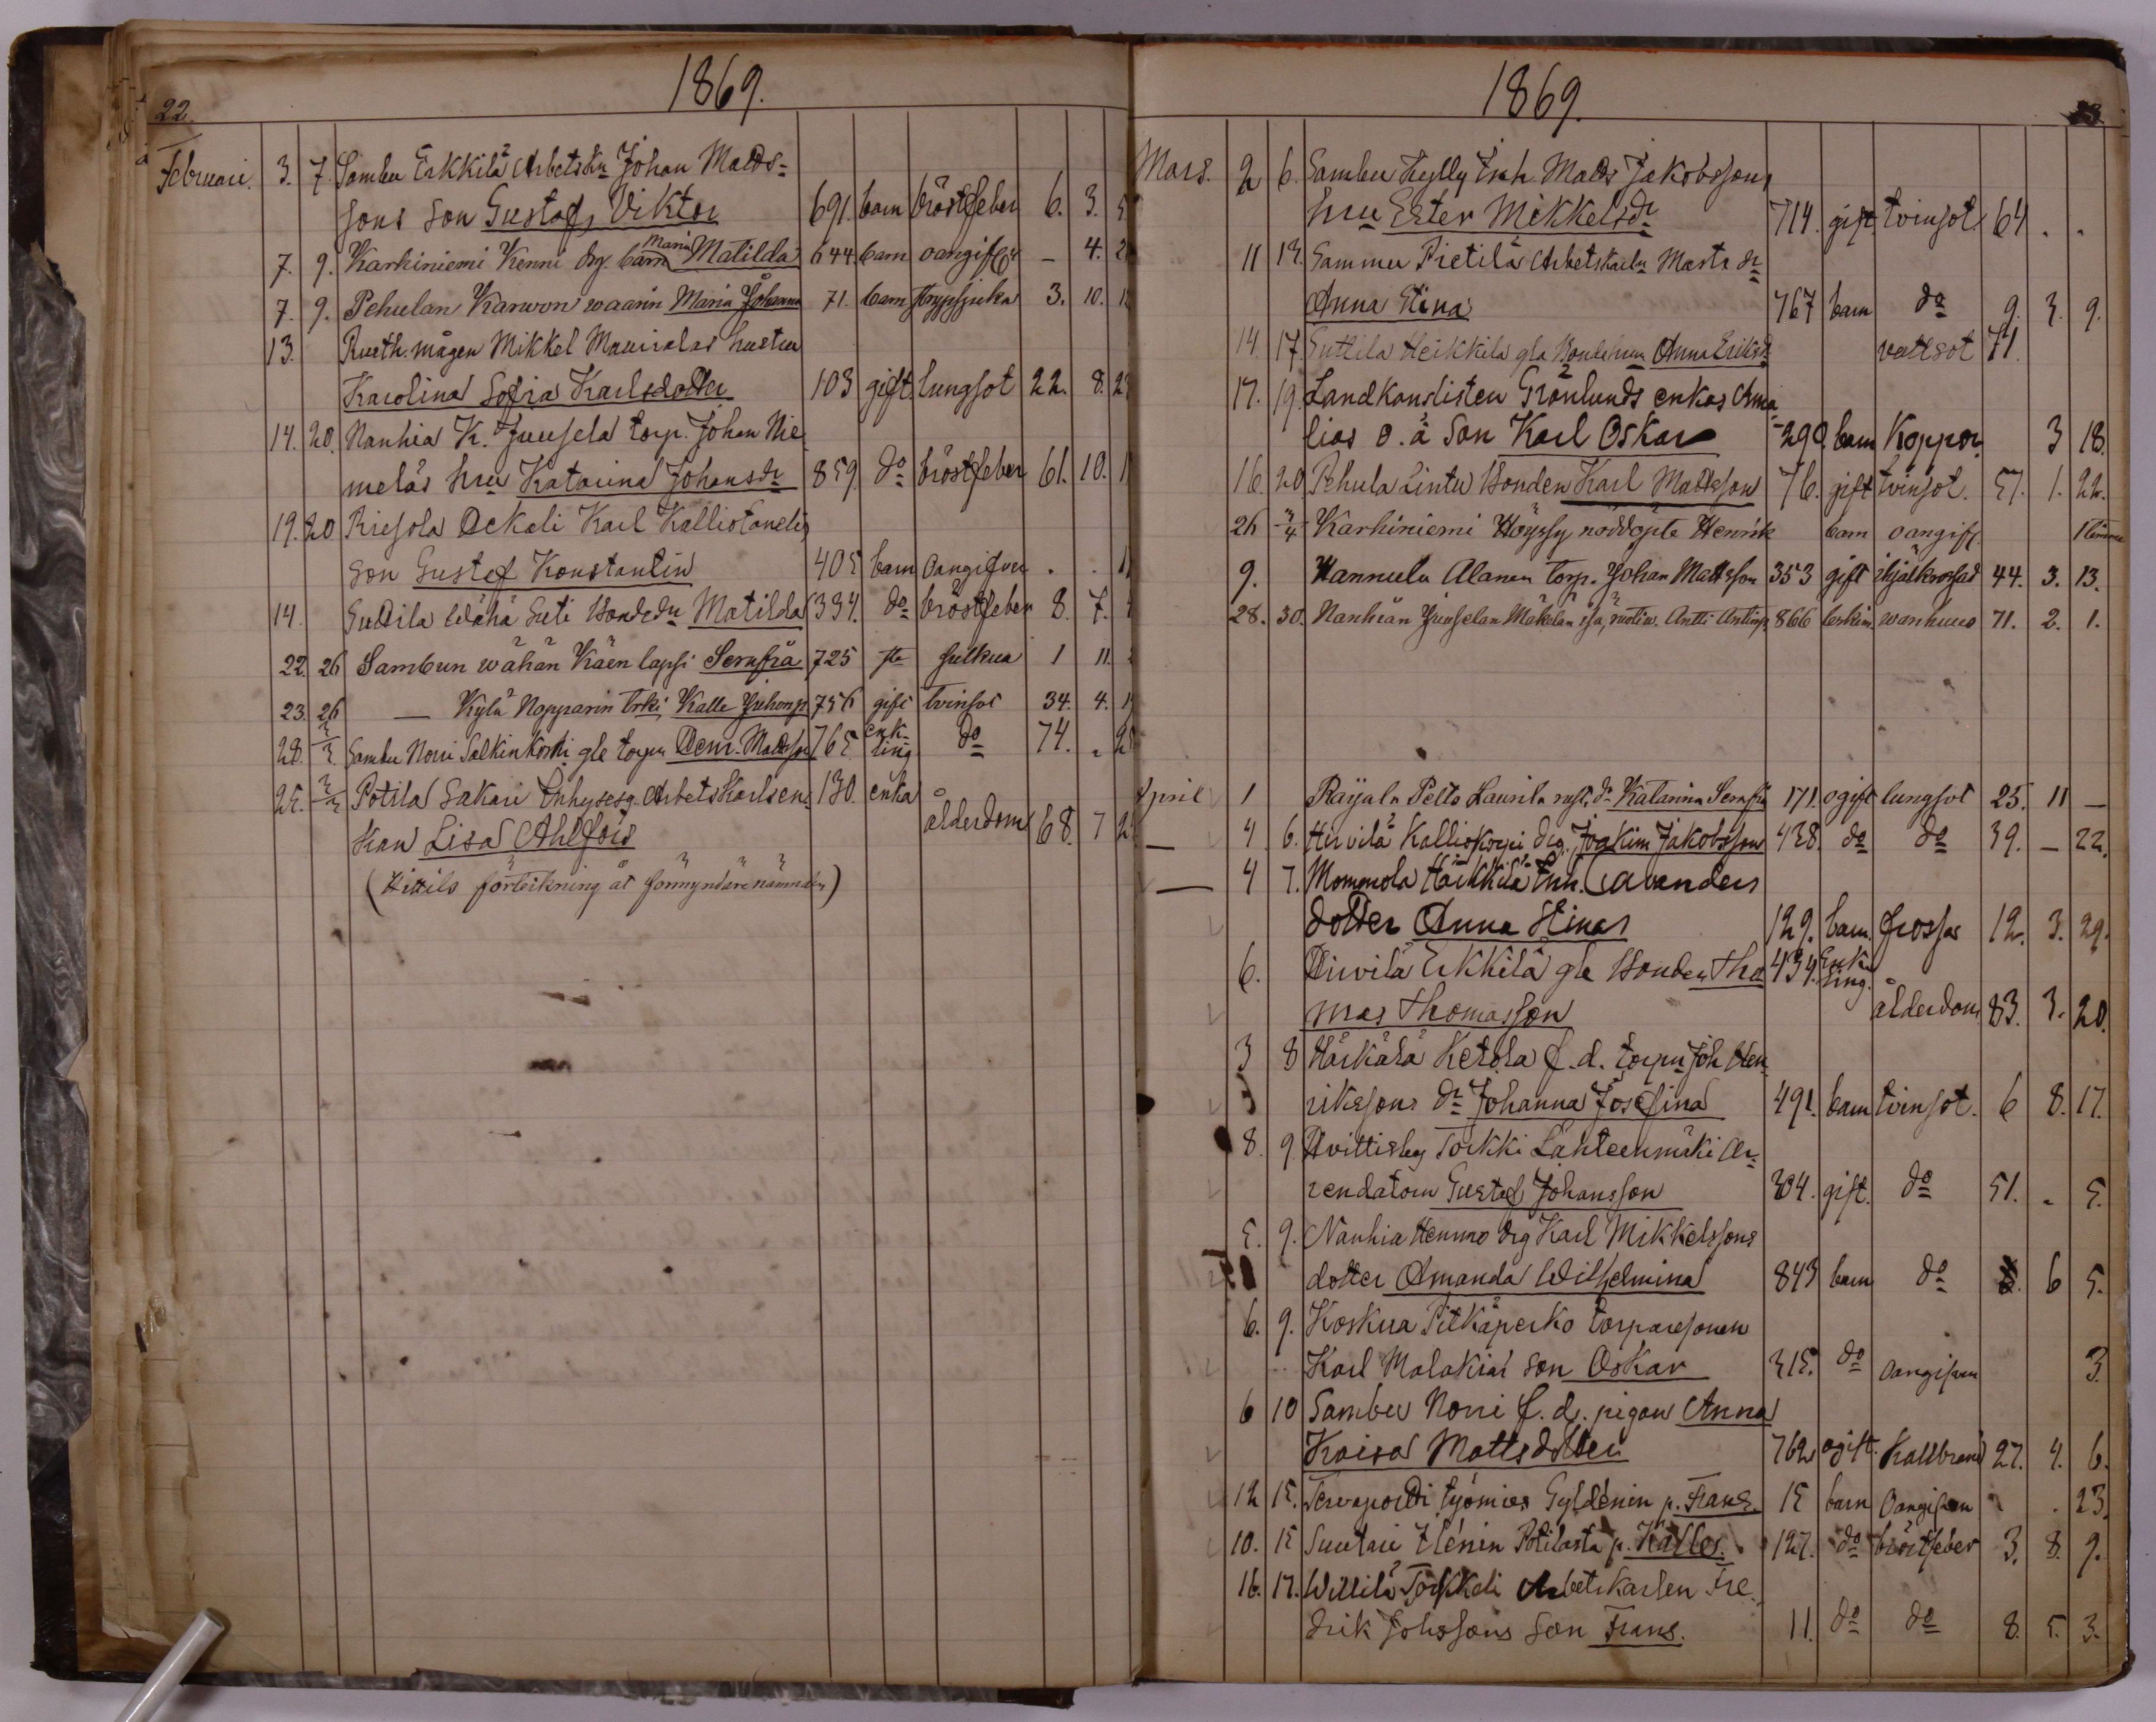 22.
1869.
Februari. 3. 7. Sambu Erkkilä Arbetsk:n Johan Matts-
sons son Gustaf Viktor 691. barn bröstfeber 6. 3. 5
7. 9. Karhiniemi Kenni drg. barn Maria Matilda 644 barn oangifv - 4. 2
7. 9. Pehulan Karwon waarin Maria Johanna 71. barn strypsjuka 3. 10. 1
13. Rusth. mågen Mikkel Maurialas hustru
Karolina Sofia Karlsdotter 103 gift lungsot 22. 8. 2
14. 20. Nanhia K. Juusela torp. Johan Nie
meläs hru Katarina Johansdr 859. do bröstfeber 61. 10. 1
19. 20 Riesola Ockeli Karl Kalliofandis
son Gustaf Konstantin 405 barn Oangifven . . 1
14. Suttila Wähä Suti Bondedr Matilda 334. do bröstfeber 8. 7.
22. 26 Sambun wähän Käen lapsi Serafia 725 sta sulkua 1 11.
23. 26 — Kylä Nopparin torki Kalle Juhonp. 756 gift tvinsot 34. 4. 1
28. 3/3 Sambu Norri Salkinkoski gle torpn Henr. Mattsson 765 enk-ling do 74. - 2
25. 3/3 Potila Sakari Inhysesg. Arbetskarlsen- 130. enka
kan Lisa Ahlfors ålderdom 68. 7 2
(Hittils förteikning åt förmyndarenämnden)
1869.
23.
Mars. 2 6. Sambu Kylly Inh. Matts Jakobssons
hru Ester Mikkelsdr 714. gift. tvinsot 64 . .
11 14. Sammu Pietilä Arbetskarln Marts dr
Anna Stina 767 barn do 9. 3. 9.
14. 17. Suttila Heikkilä gla Bondehrun Anna Eriksdr vattsot 71.
17. 19. Landkanslisten Grönlunds enkas Ama
lias o. ä son Karl Oskar 290. barn Koppor 3 18.
16. 20 Pehula Lintu Bonden Karl Mattsson 76. gift tvinsot. 57. 1. 22.
26 3/4 Karhiniemi Höyssy nöddöpte Henrik barn oangifv. 1 timme
9. Hannulu Alanen torp. Johan Mattsson 353 gift ihjälkrossad 44. 3. 13.
28. 30. Nanhian Juuselan Mäkelän isä, ruotiv. Antti Antinp. 866 leskim. wanhuus 71. 2. 1.
April 1 Raijala Pelto Laurila rust. dr Katarina Serafia 171. ogift lungsot 25. 11 —
— 4 6. Hirvilä Kalliokorpi drg. Joakim Jakobsson 438. do do 39. — 22.
— 4 7. Mommola Härkkilä Inh. Lavanders
dotter Anna Stina 129. barn. frossa 12. 3. 29.
6. Hirvilä Erkkilä gle Bonden Tho 434. Enk-ling.
mas Thomasson ålderdom 83. 3. 20.
3 8 Härkälä Ketola f.d. torpn Joh Hen
rikssons dr Johanna Josefina 491. barn tvinsot. 6 8. 17.
8. 9 Hvittisby Torkki Lähteenmäki Ar-
rendatorn Gustaf Johansson 304. gift. do 51. - 5.
5. 9. Nanhia Hemmo drg Karl Mikkelssons
dotter Amanda Wilhelmina 843 barn do 6 5.
6. 9. Koskua Pitkäperko torparesonen
Karl Malakias son Oskar 315. do Oangifven 3.
6 10 Sambu Norri f.d. pigan Anna
Kaisa Mattsdotter 762 ogift. Kallbrand 27. 4. 6.
12 15. Tervaportti työmies Gyldénin p. Frans. 15 barn Oangifven . . 23.
10. 15 Suutari Flénin Potilasta p. Kalle. 127. do bröstfeber 3. 8. 9.
16. 17. Willilä Torkkeli Arbetskarlen Fre
drik Johssons son Frans. 11. do do 8. 5. 3.